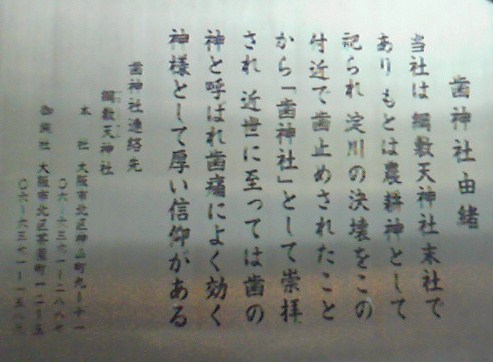 歯神社由緒
当社は 綱敷天神社末社で
あり もとは農耕神として
祀られ 淀川の決壊をこの
付近で歯止めされたこと
から「歯神社」として崇拝
され 近世に至っては歯の
神と呼ばれ歯痛によく効く
神様として厚い信仰がある
歯神社連絡先
綱敷天神社
本 社 大阪市北区神山町九ー十一
〇六ー六三六一ー二八八七
御旅社 大阪市北区茶屋町一二ー五
〇六ー六三七一ー一五八六